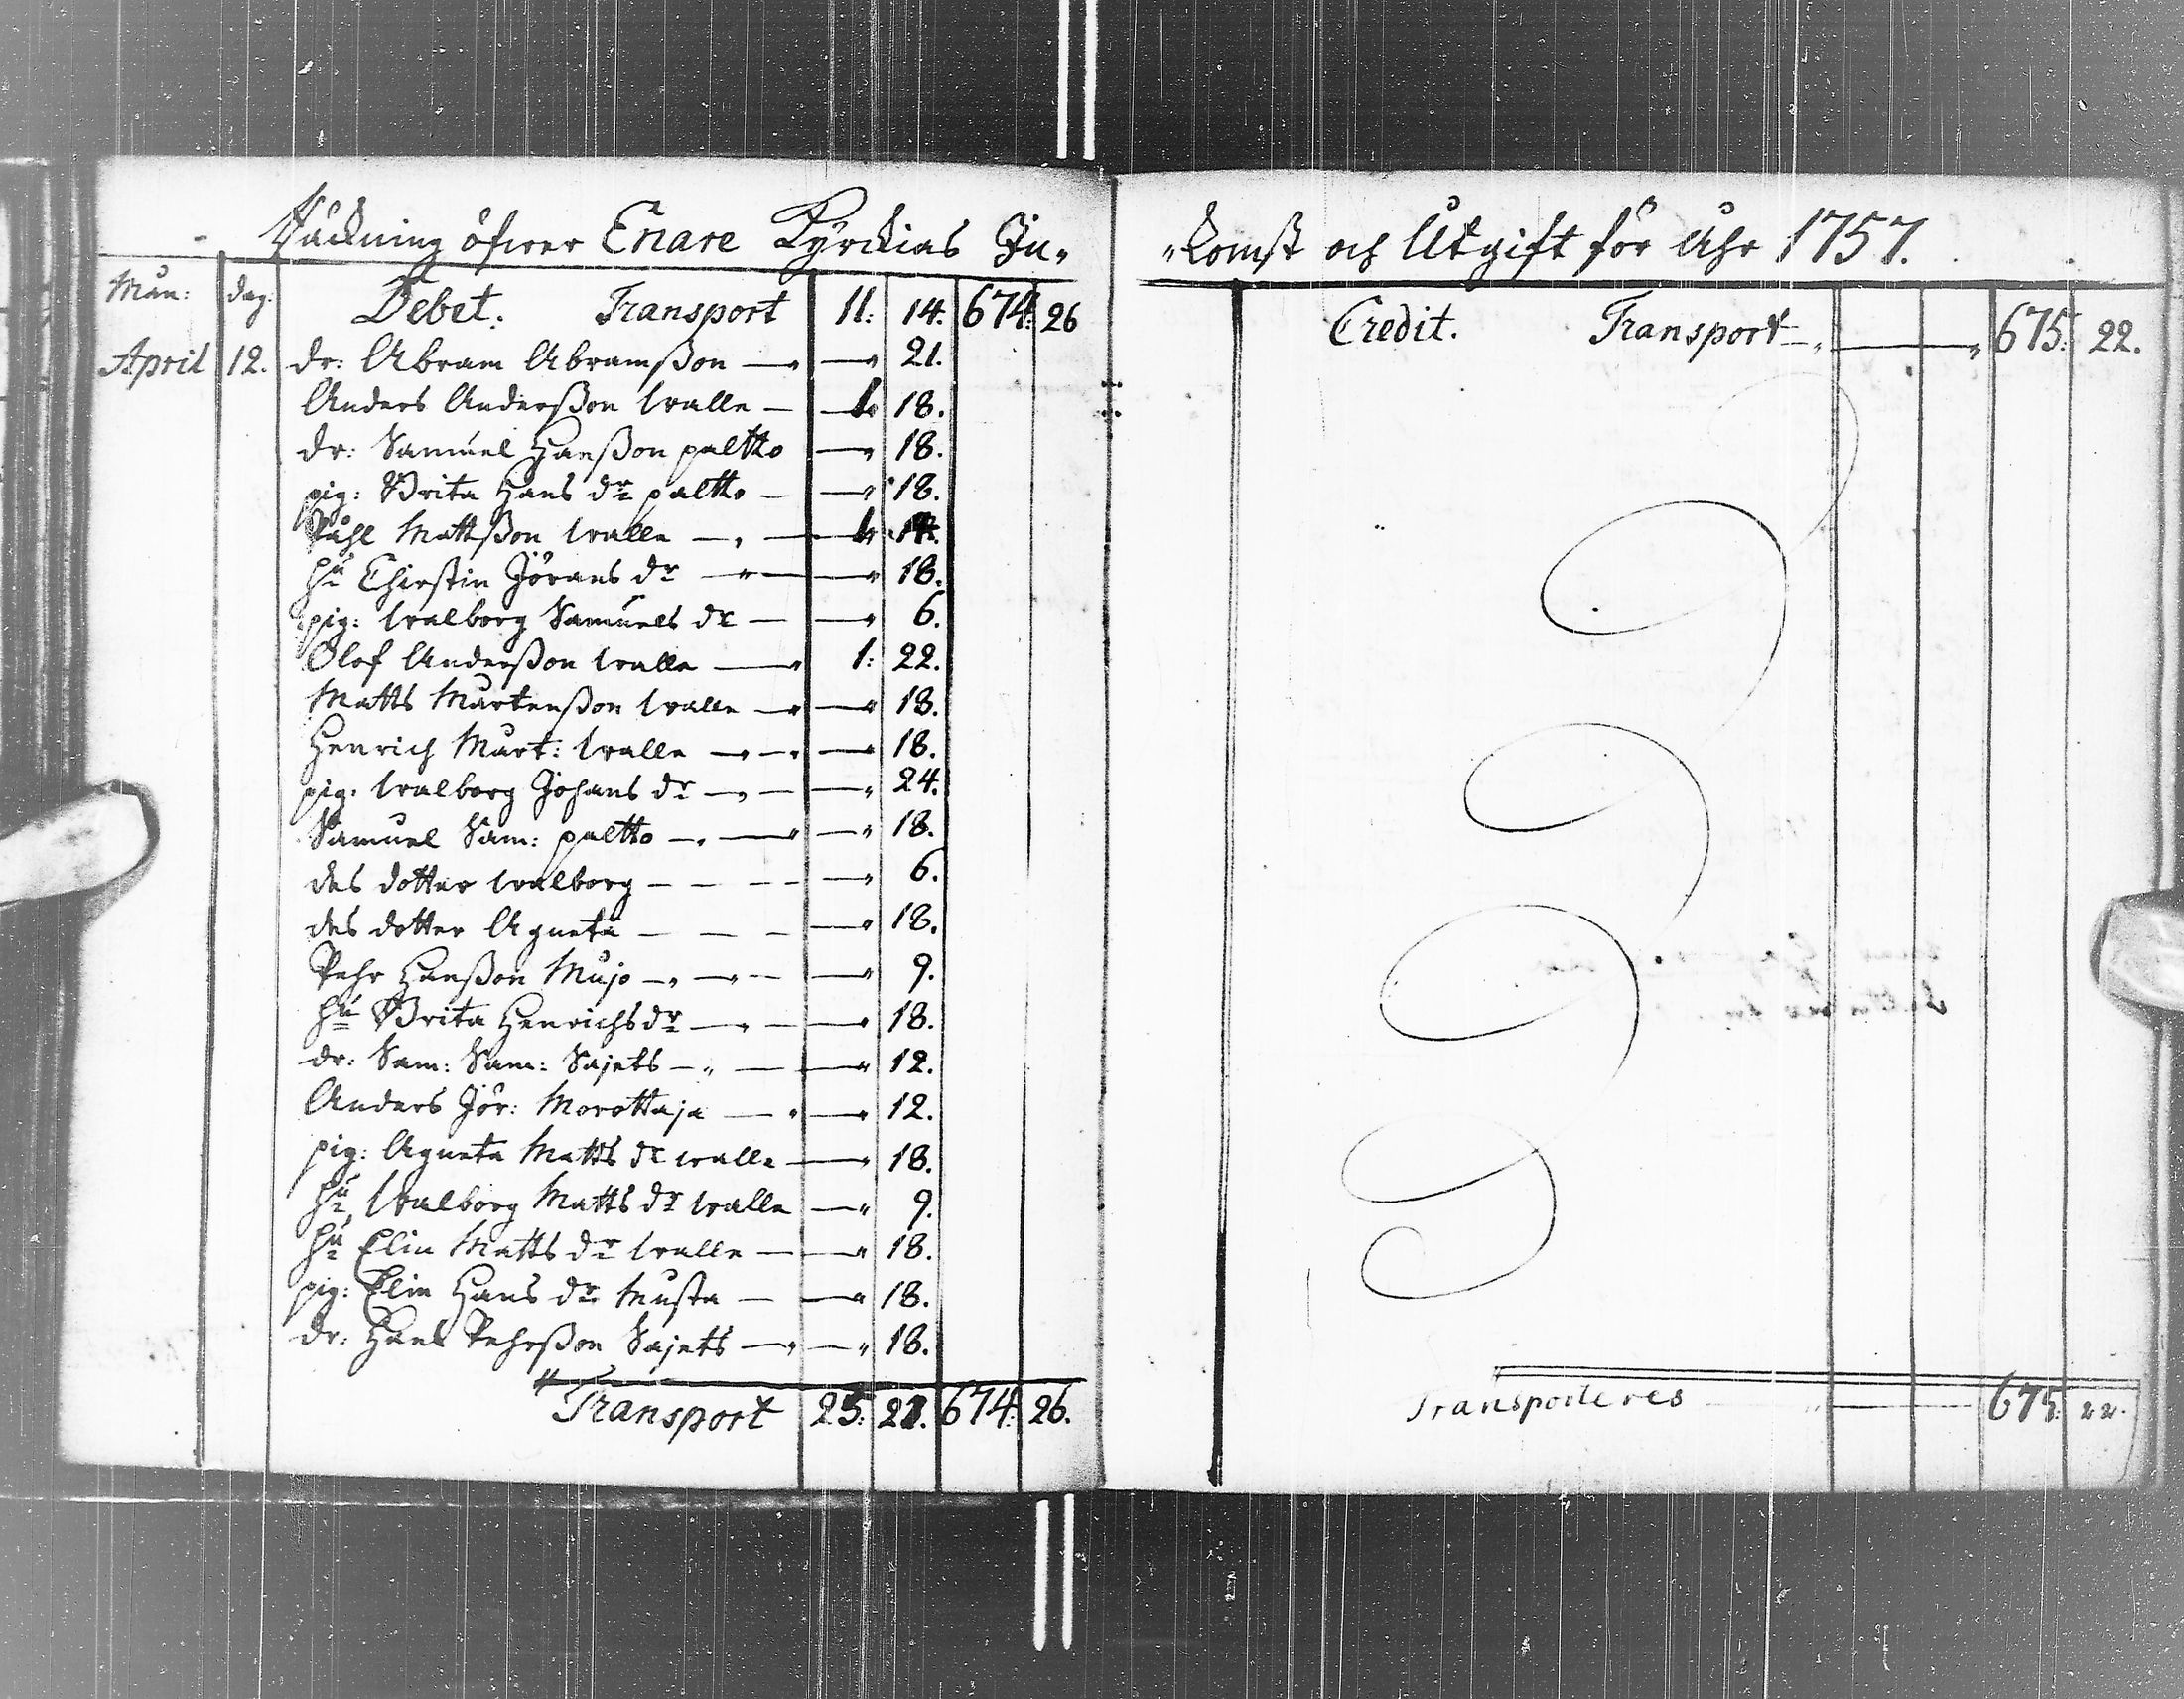 Räckning öfwer Enare Kyrckias In-
Mån: dag: Debet: Transport 11: 14. 674: 26
April 12. dr: Abram Abramsson — — 21.
Anders Andersson Walle — — 18.
dr: Samuel Hansson paltto — 18.
pig: Brita Hans dr paltto — — 18.
Påhl Mattsson Walle — —
hu Chirstin Jörans dr — — 18.
pig: Walborg Samuels dr — — 6.
Olof Andersson Walle — 1: 22.
Matts Mårtensson Walle — — 18.
Henrich Mårt: Walle — — 18.
pig: Walborg Johans dr — — 24.
Samuel Sam: paltto — — 18.
des dotter Walborg — — 6.
des dotter Agneta — — 18.
Pehr Hansson Mujo — — 9.
hu Brita Henrichs dr — — 18.
dr: Sam: Sam: Sajets — — 12.
Anders Jör: Morottaja — — 12.
pig: Agneta Matts dr Walle — 18.
hu Walborg Matts dr Walle — 9.
hu Elin Matts dr Walle — — 18.
pig: Elin Hans dr Musta — — 18.
dr: Hans Pehrsson Sajets — — 18.
Transport 25: 674: 26.
-komst och Utgift för Åhr 1757.
Credit. Transport — 675: 22.
Transporteres — 675: 22.